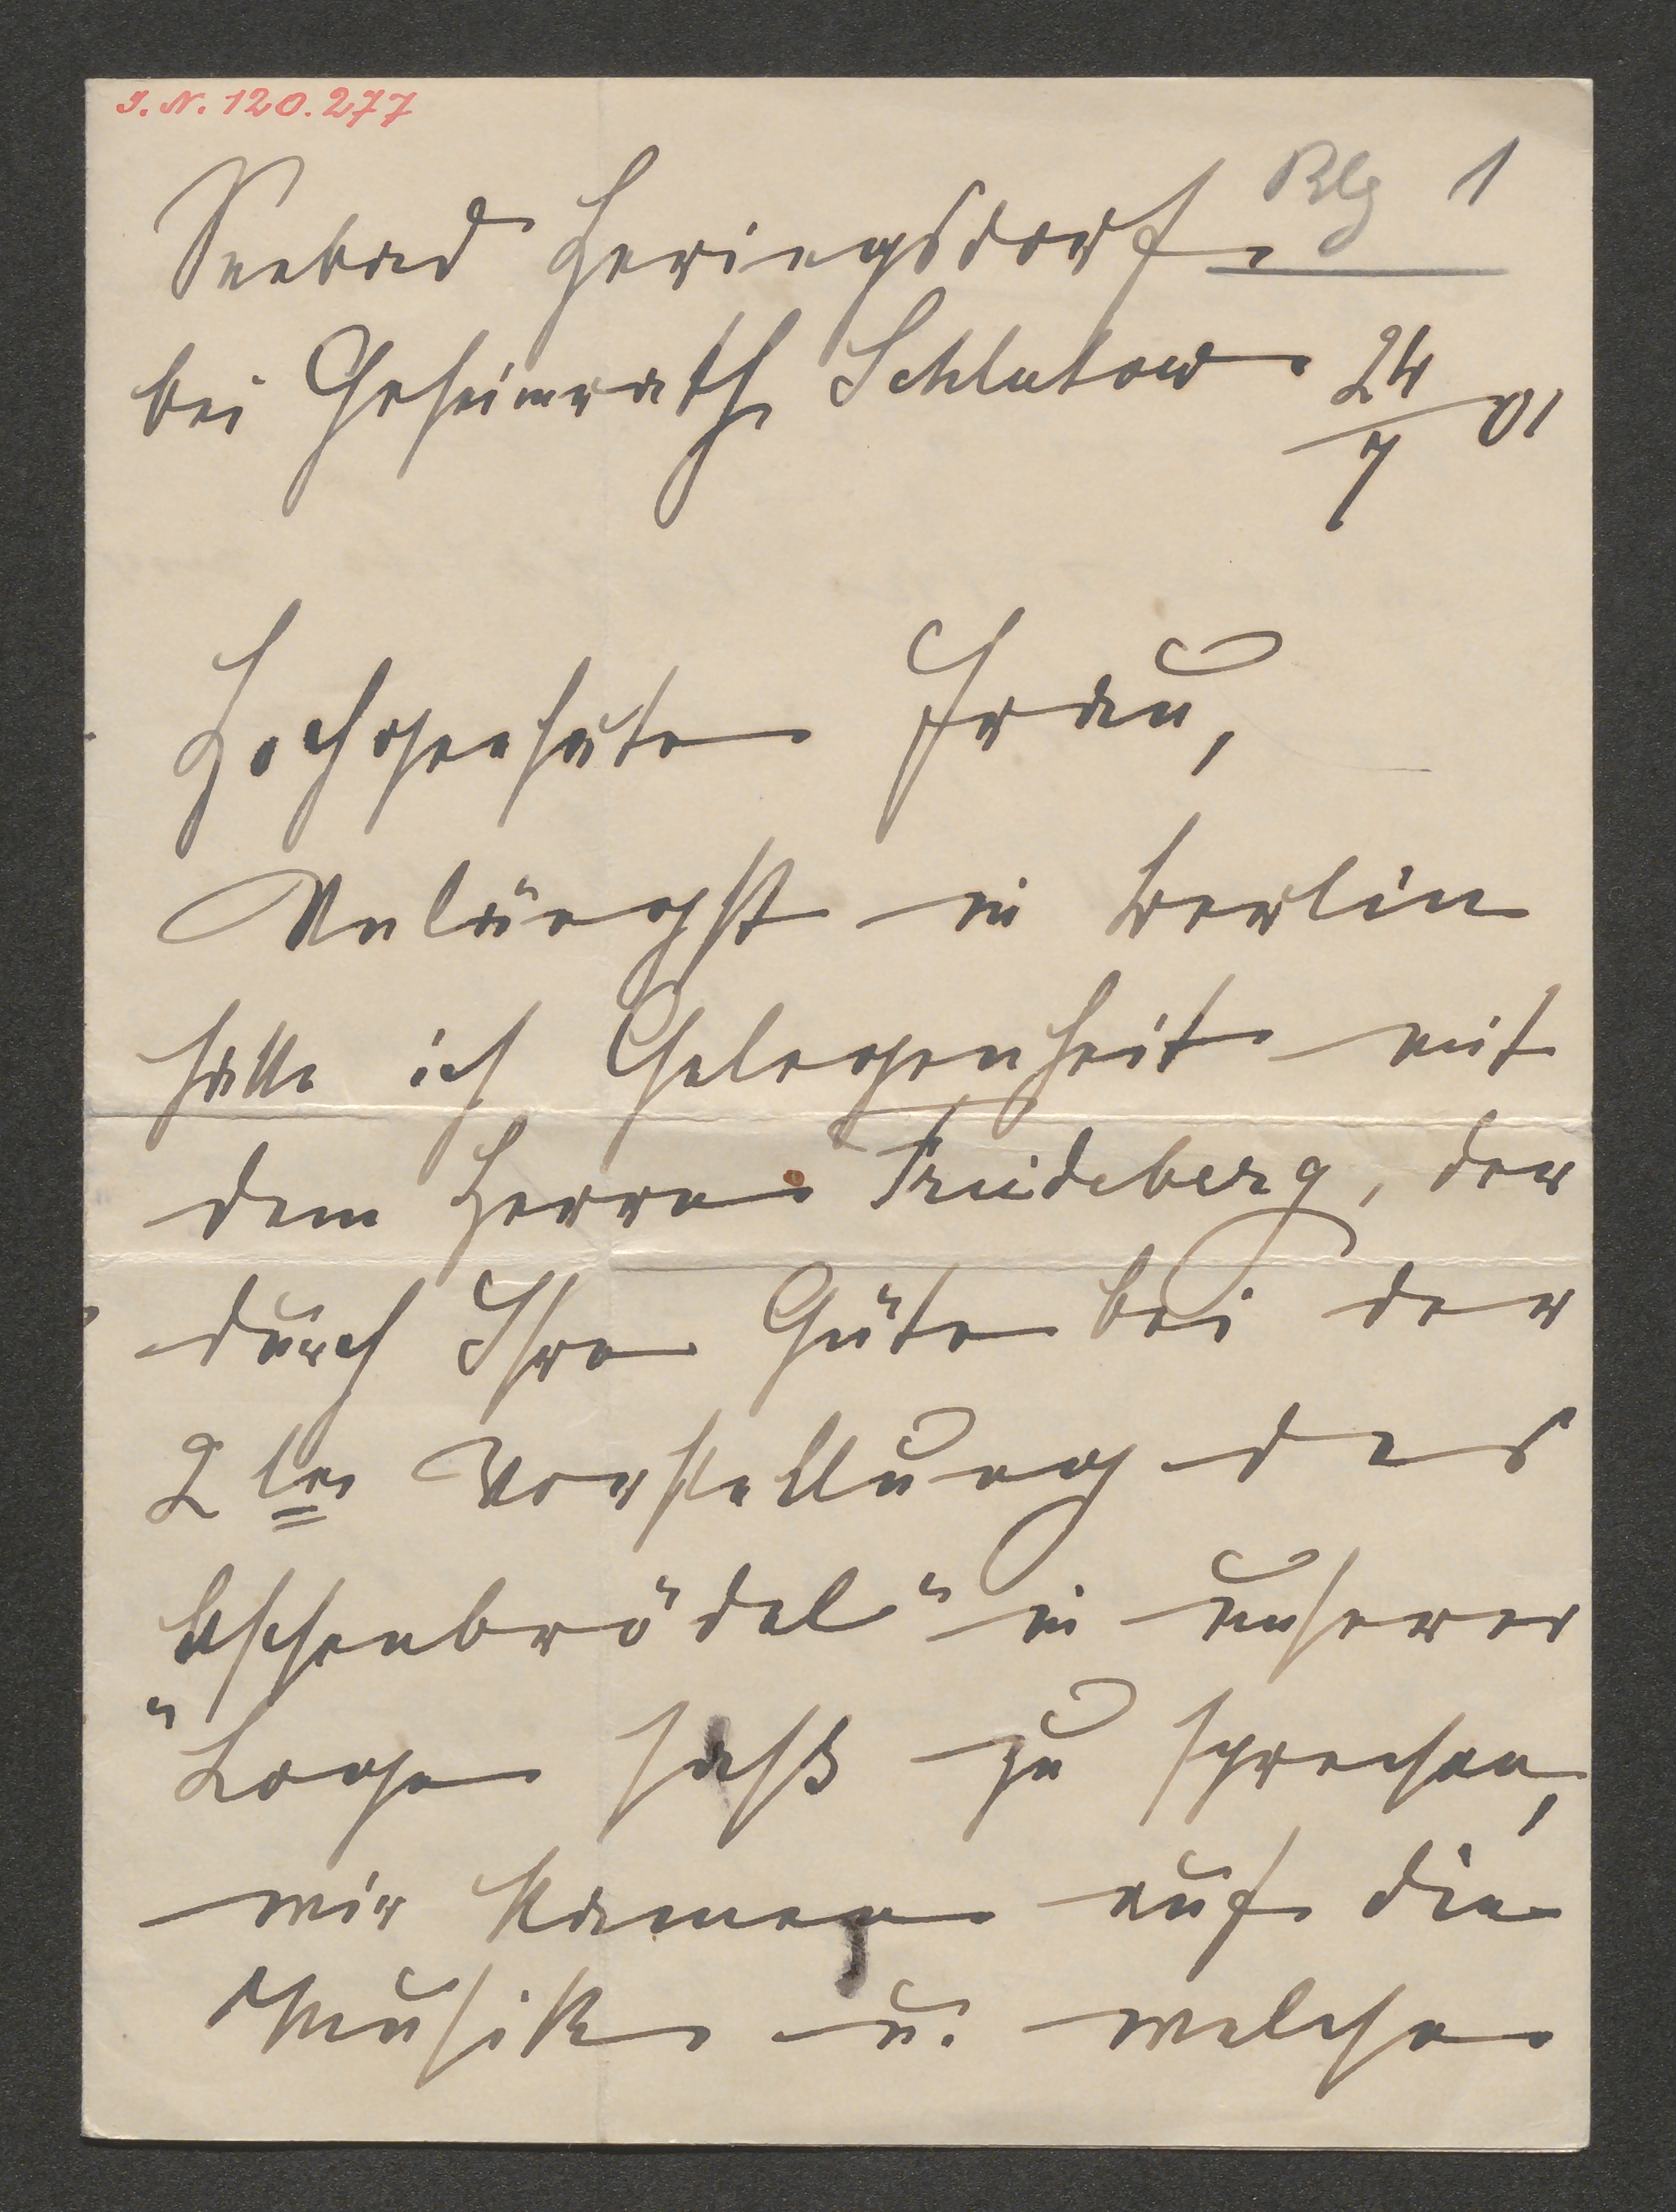 J. N. 120.277
Blg 1
Seebad Heringsdorf.
bei Geheimrath Schlutow. 24/7 01
Hochgeehrte Frau,
Unlängst in Berlin
hatte ich Gelegenheit mit
dem Herrn Friedeberg, der
durch Ihre Güte bei der
2ten Vorstellung des
Aschenbrödel" in unserer
"Loge saß zu sprechen,
wir kamen auf die
Musik u. welche